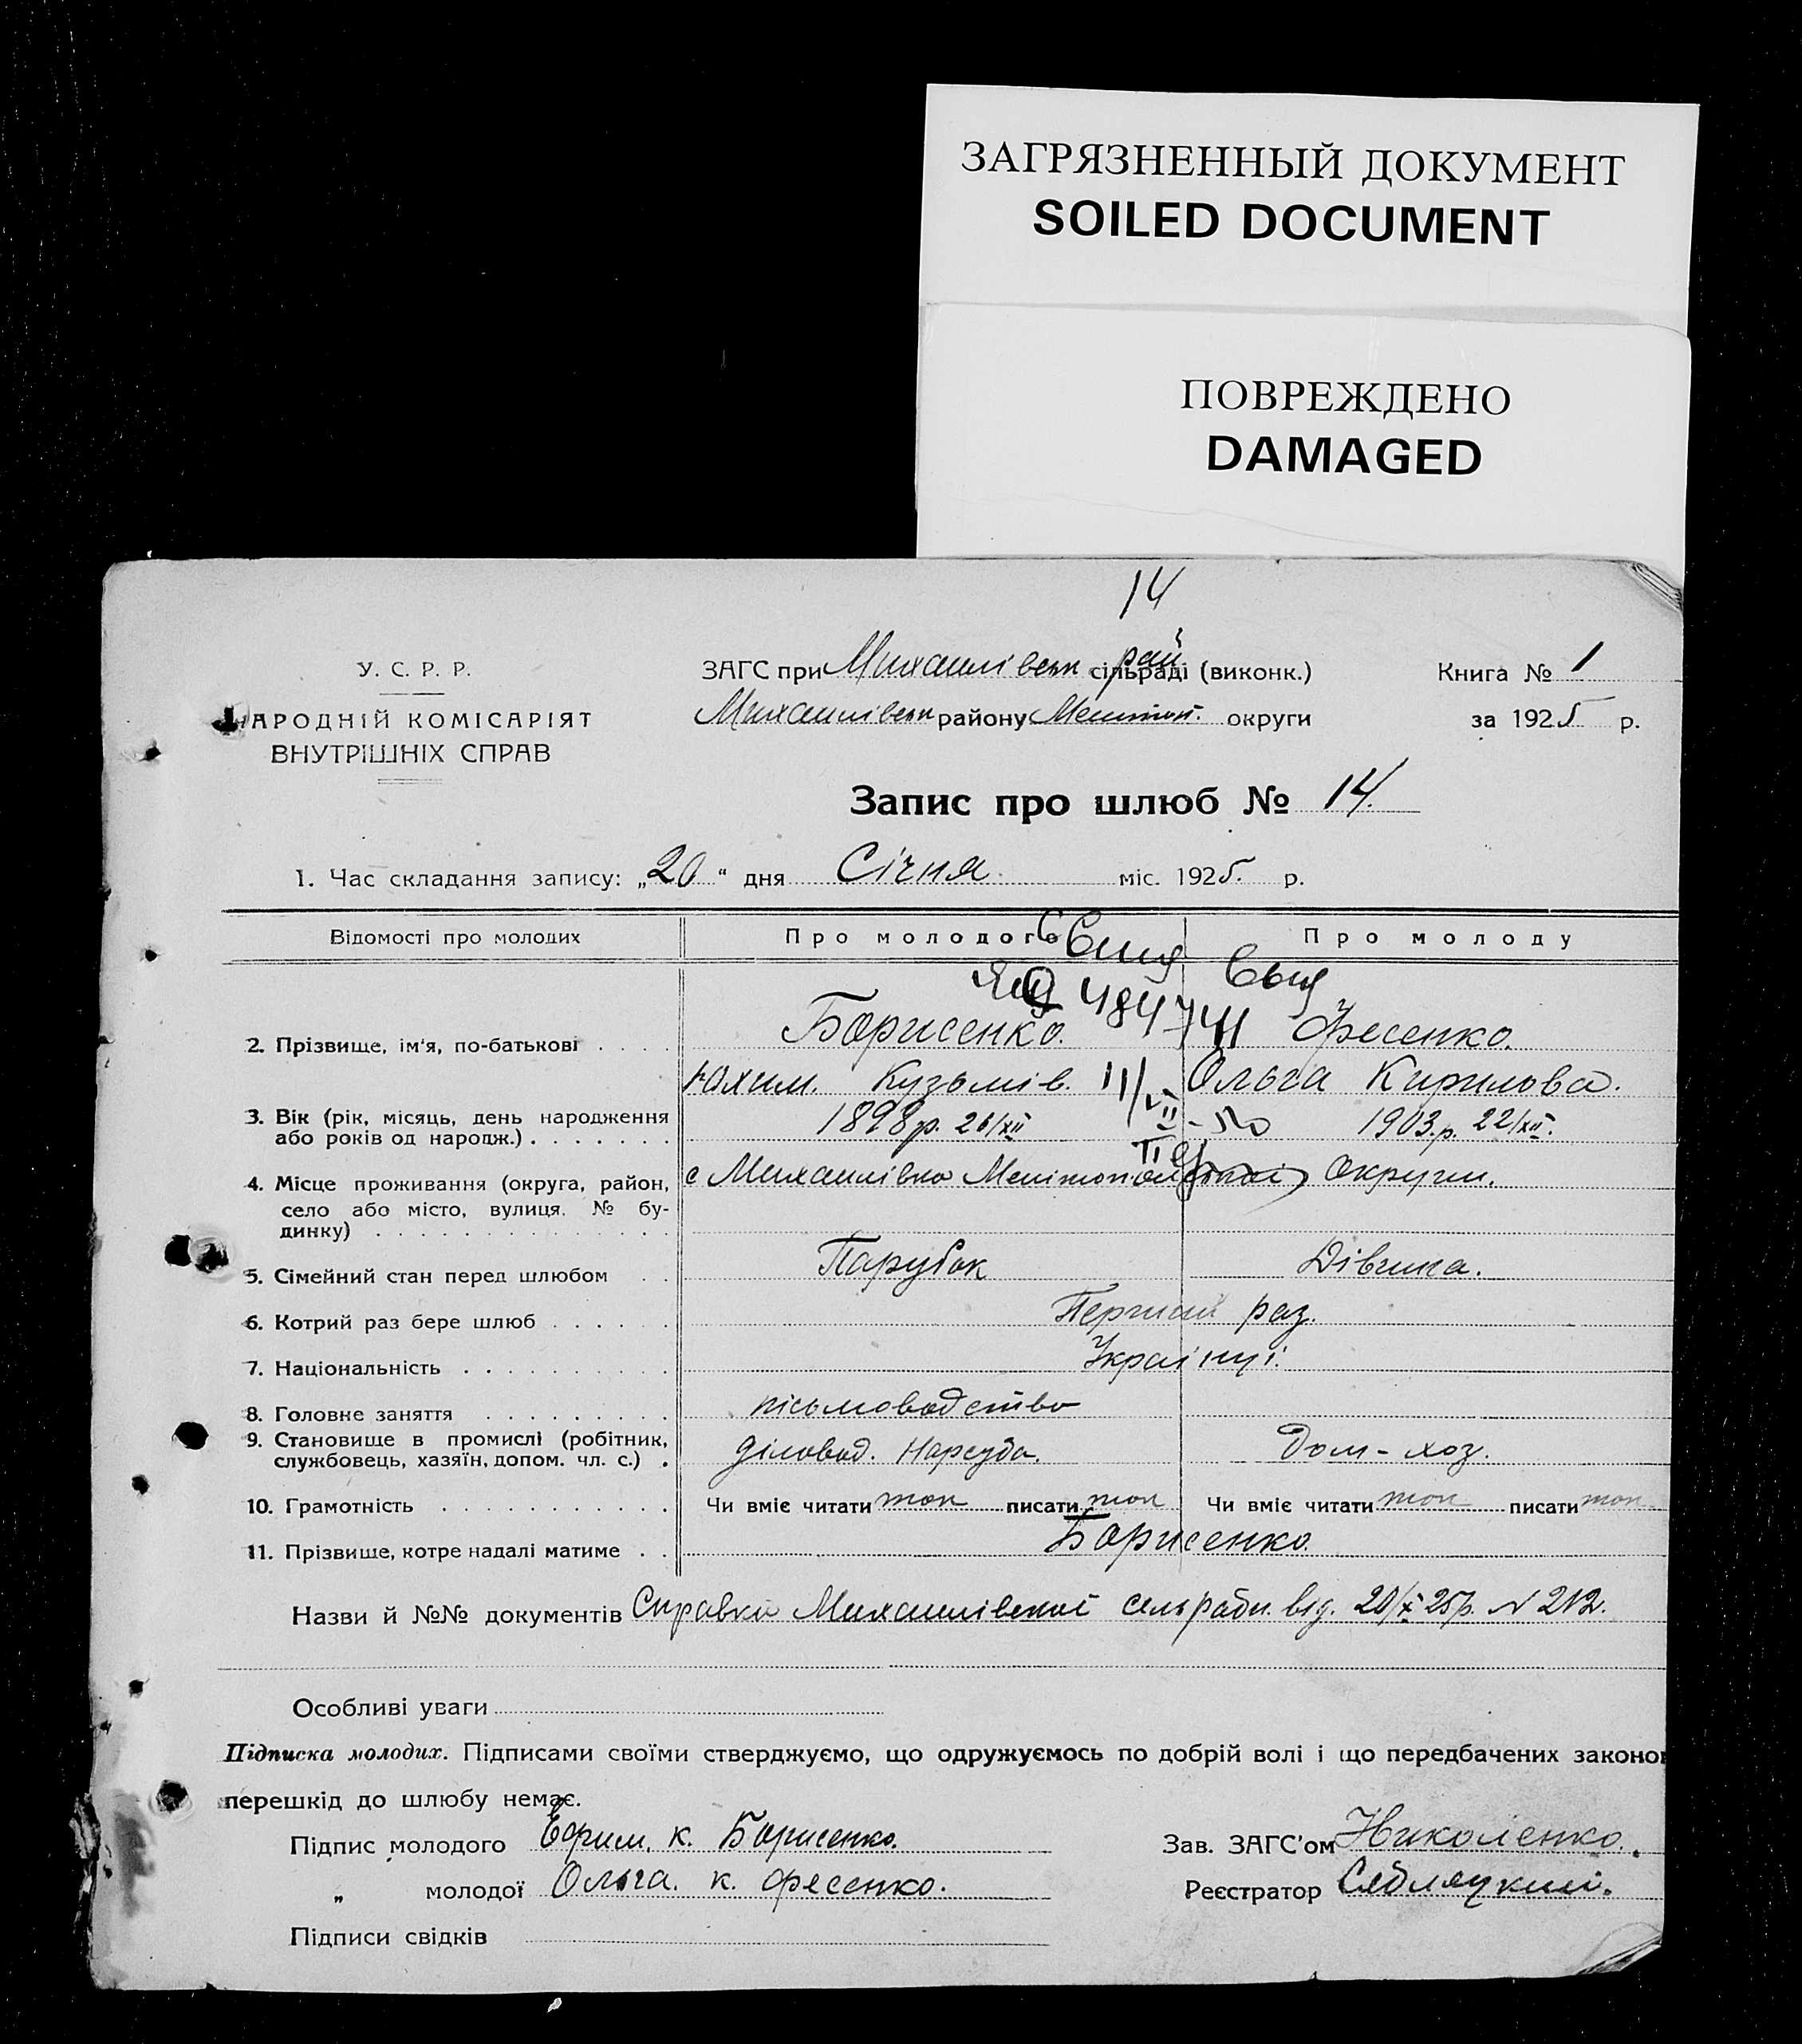 ЗАГРЯЗНЕННЫЙ ДОКУМЕНТ
SOILED DOCUMENT
ПОВРЕЖДЕНО
DAMAGED
14
У. С. Р. Р.
НАРОДНІЙ КОМІСАРІЯТ
ВНУТРІШНІХ СПРАВ
ЗАГС при Михайлівськ рай сільраді (виконк.)
Михайлівськ району Мелітоп. округи
Книга № 1
за 1925 р.
Запис про шлюб № 14.
1. Час складання запису: „20“ дня Січня міс. 1925. р.
Відомості про молодих Про молодого Про молоду
484741
2. Прізвище, ім'я, по-батькові . . . . Борисенко. Фесенко.
Юхим. Кузьмів. Ольга Кирилова.
3. Вік (рік, місяць, день народження
або років од народж.) . . . . . . . 1898 р. 26/XII 1903.р. 22/XII.
4. Місце проживання (округа, район,
село або місто, вулиця. № бу-
динку) . . . . . . . . . . . . . .
с Михайлівка Мелітопольської Округи.
5. Сімейний стан перед шлюбом . . Парубок Дівчина.
6. Котрий раз бере шлюб . . . . . . Перший раз.
7. Національність . . . . . . . . . . Українці.
8. Головне заняття . . . . . . . . . пісьмоводство
9. Становище в промислі (робітник,
службовець, хазяїн, допом. чл. с.) . діловод. Нарсуда. Дом-хоз.
10. Грамотність . . . . . . . . . . . Чи вміє читати так писати так Чи вміє читати так писати так
11. Прізвище, котре надалі матиме . . Борисенко.
Назви й №№ документів Справки Михайлівської сельради від. 20/ 25р. N 212.
Особливі уваги
Підписка молодих. Підписами своїми стверджуємо, що одружуємось по добрій волі і що передбачених законо
перешкід до шлюбу немає.
Підпис молодого Ефим. К. Борисенко.
„ молодої Ольга. К. Фесенко.
Підписи свідків
Зав. ЗАГС'ом Николенко.
Реєстратор